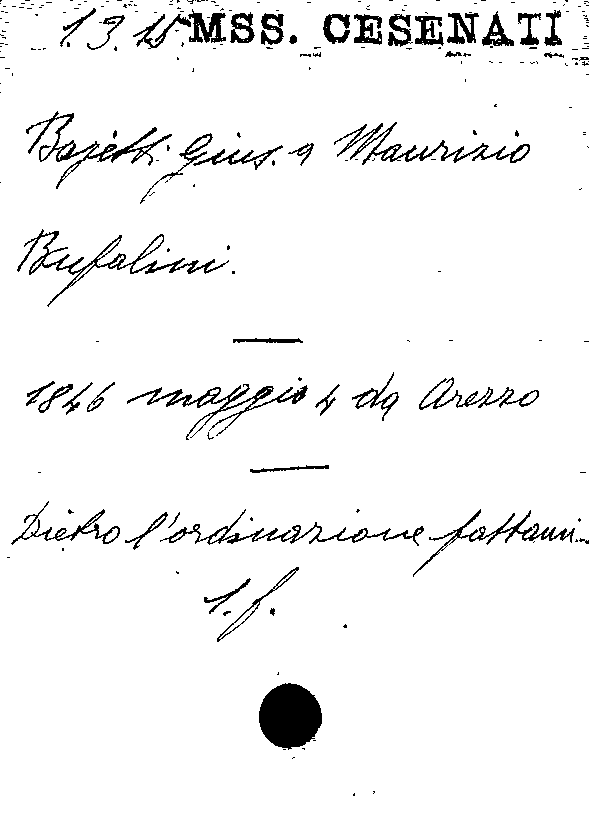 1.3.15 MSS. CESENATI
Bajetti Gius. a Maurizio
Bufalini.
1846 maggio 4 da Arezzo
Dietro l'ordinazione fattami..
1. f.